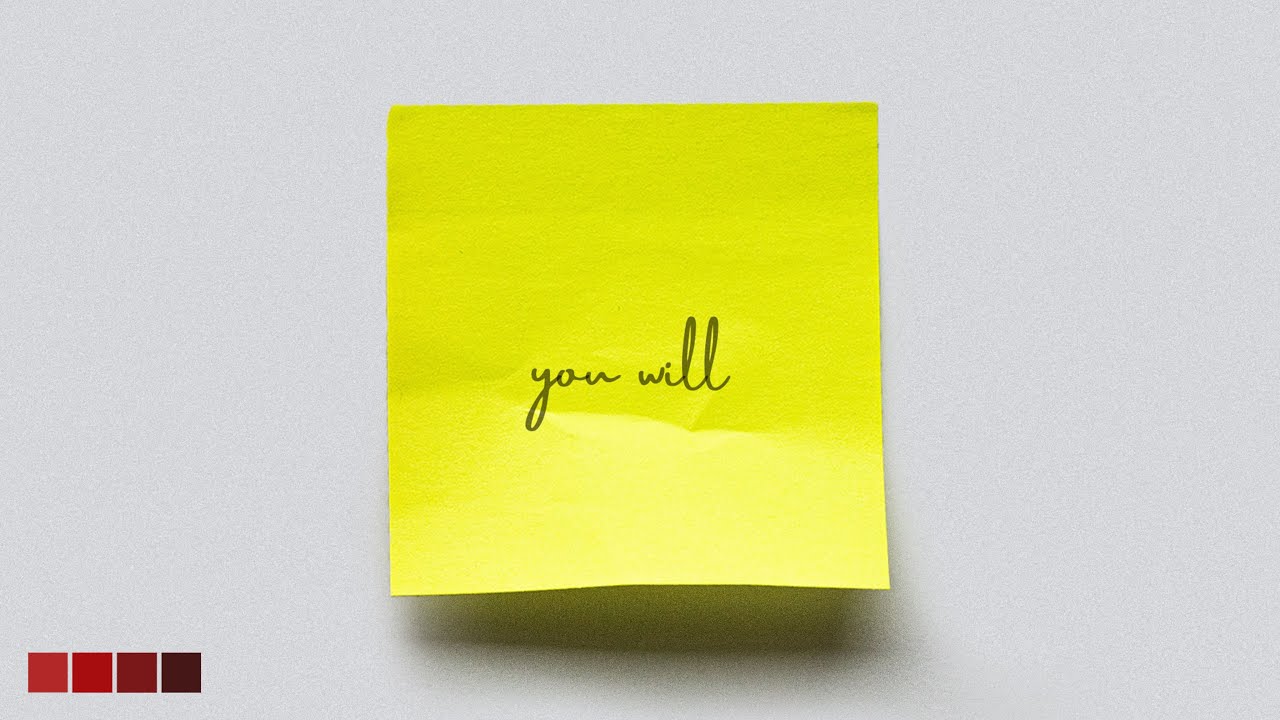 you will